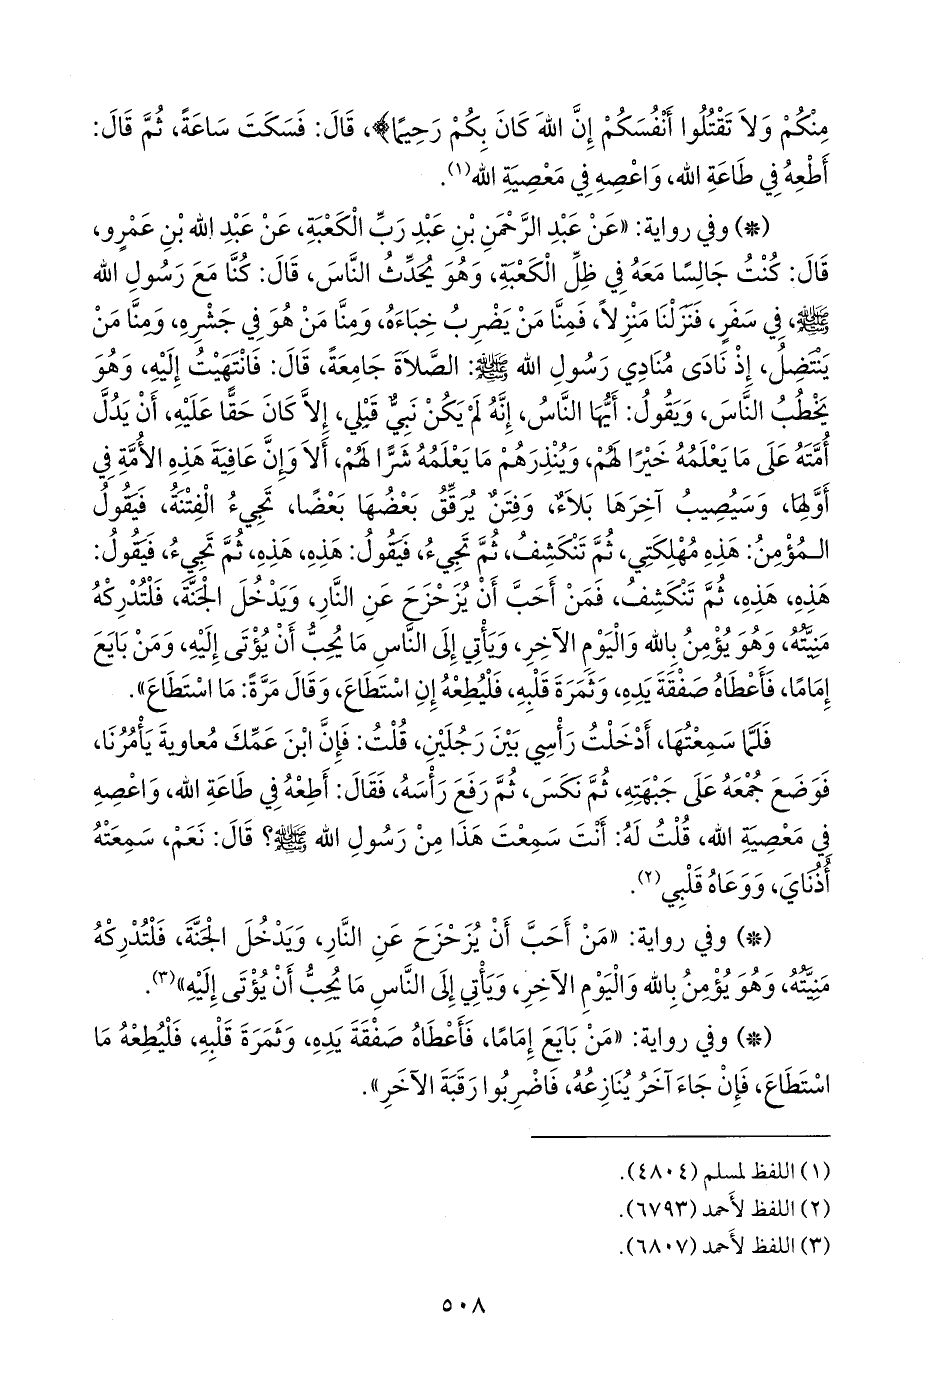 مِنْكُمْ وَلاَ تَقْتُلُوا أَنْفُسَكُمْ إِنَّ اللهَ كَانَ بِكُمْ رَحِيمًا﴾، قَالَ: فَسَكَتَ سَاعَةً، ثُمَّ قَالَ:
أَطْعِهُ فِي طَاعَةِ الله، وَاعْصِهِ فِي مَعْصِيَةِ الله(١).
(*) وفي رواية: «عَنْ عَبْدِ الرَّحْمَنِ بْنِ عَبْدِ رَبِّ الْكَعْبَةِ، عَنْ عَبْدِ الله بْنِ عَمْرٍو،
قَالَ: كُنْتُ جَالِسًا مَعَهُ فِي ظِلِّ الْكَعْبَةِ، وَهُوَ يُحَدِّثُ النَّاسَ، قَالَ: كُنَّا مَعَ رَسُولِ الله
ﷺ، فِي سَفَرٍ، فَنَزَلْنَا مَنْزِلاً، فَمِنَّا مَنْ يَضْرِبُ خِبَاءَهُ، وَمِنَّا مَنْ هُوَ فِي جَشْرِهِ، وَمِنَّا مَنْ
يَنْتَضِلُ، إِذْ نَادَى مُنَادِي رَسُولِ الله ﷺ: الصَّلاَةَ جَامِعَةً، قَالَ: فَانْتَهَيْتُ إِلَيْهِ، وَهُوَ
يَخْطُبُ النَّاسَ، وَيَقُولُ: أَيُّهَا النَّاسُ، إِنَّهُ لَمْ يَكُنْ نَبِيٌّ قَبْلِي، إِلاَّ كَانَ حَقًّا عَلَيْهِ، أَنْ يَدُلَّ
أُمَّتَهُ عَلَى مَا يَعْلَمُهُ خَيْرًا لَهُمْ، وَيُنْذِرَهُمْ مَا يَعْلَمُهُ شَرًّا لَهُمْ، أَلاَ وَإِنَّ عَافِيَةَ هَذِهِ الأُمَّةِ فِي
أَوَّلِهَا، وَسَيُصِيبُ آخِرَهَا بَلاَءٌ، وَفِتَنٌ يُرَقِّقُ بَعْضُهَا بَعْضًا، تَجِيءُ الْفِتْنَةُ، فَيَقُولُ
الـمُؤْمِنُ: هَذِهِ مُهْلِكَتِي، ثُمَّ تَنْكَشِفُ، ثُمَّ تَجِيءُ، فَيَقُولُ: هَذِهِ، هَذِهِ، ثُمَّ تَجِيءُ، فَيَقُولُ:
هَذِهِ، هَذِهِ، ثُمَّ تَنْكَشِفُ، فَمَنْ أَحَبَّ أَنْ يُزَحْزَحَ عَنِ النَّارِ، وَيَدْخُلَ الْجَنَّةَ، فَلْتُدْرِكْهُ
مَنِيَّتُهُ، وَهُوَ يُؤْمِنُ بِالله وَالْيَوْمِ الآخِرِ، وَيَأْتِي إِلَى النَّاسِ مَا يُحِبُّ أَنْ يُؤْتَى إِلَيْهِ، وَمَنْ بَايَعَ
إِمَامًا، فَأَعْطَاهُ صَفْقَةَ يَدِهِ، وَثَمَرَةَ قَلْبِهِ، فَلْيُطِعْهُ إِنِ اسْتَطَاعَ، وَقَالَ مَرَّةً: مَا اسْتَطَاعَ».
فَلَمَّا سَمِعْتُهَا، أَدْخَلْتُ رَأْسِي بَيْنَ رَجُلَيْنِ، قُلْتُ: فَإِنَّ ابْنَ عَمِّكَ مُعاوية يَأْمُرُنَا،
فَوَضَعَ جُمْعَهُ عَلَى جَبْهَتِهِ، ثُمَّ نَكَسَ، ثُمَّ رَفَعَ رَأْسَهُ، فَقَالَ: أَطِعْهُ فِي طَاعَةِ الله، وَاعْصِهِ
فِي مَعْصِيَةِ الله، قُلْتُ لَهُ: أَنْتَ سَمِعْتَ هَذَا مِنْ رَسُولِ الله ﷺ؟ قَالَ: نَعَمْ، سَمِعَتْهُ
أُذُنَايَ، وَوَعَاهُ قَلْبِي(٢).
(*) وفي رواية: «مَنْ أَحَبَّ أَنْ يُزَحْزَحَ عَنِ النَّارِ، وَيَدْخُلَ الْجَنَّةَ، فَلْتُدْرِكْهُ
مَنِيَّتُهُ، وَهُوَ يُؤْمِنُ بِالله وَالْيَوْمِ الآخِرِ، وَيَأْتِي إِلَى النَّاسِ مَا يُحِبُّ أَنْ يُؤْتَى إِلَيْهِ»(٣).
(*) وفي رواية: «مَنْ بَايَعَ إِمَامًا، فَأَعْطَاهُ صَفْقَةَ يَدِهِ، وَثَمَرَةَ قَلْبِهِ، فَلْيُطِعْهُ مَا
اسْتَطَاعَ، فَإِنْ جَاءَ آخَرُ يُنَازِعُهُ، فَاضْرِبُوا رَقَبَةَ الآخَرِ».
(١) اللفظ لمسلم (٤٨٠٤).
(٢) اللفظ لأحمد (٦٧٩٣).
(٣) اللفظ لأحمد (٦٨٠٧).
٥٠٨